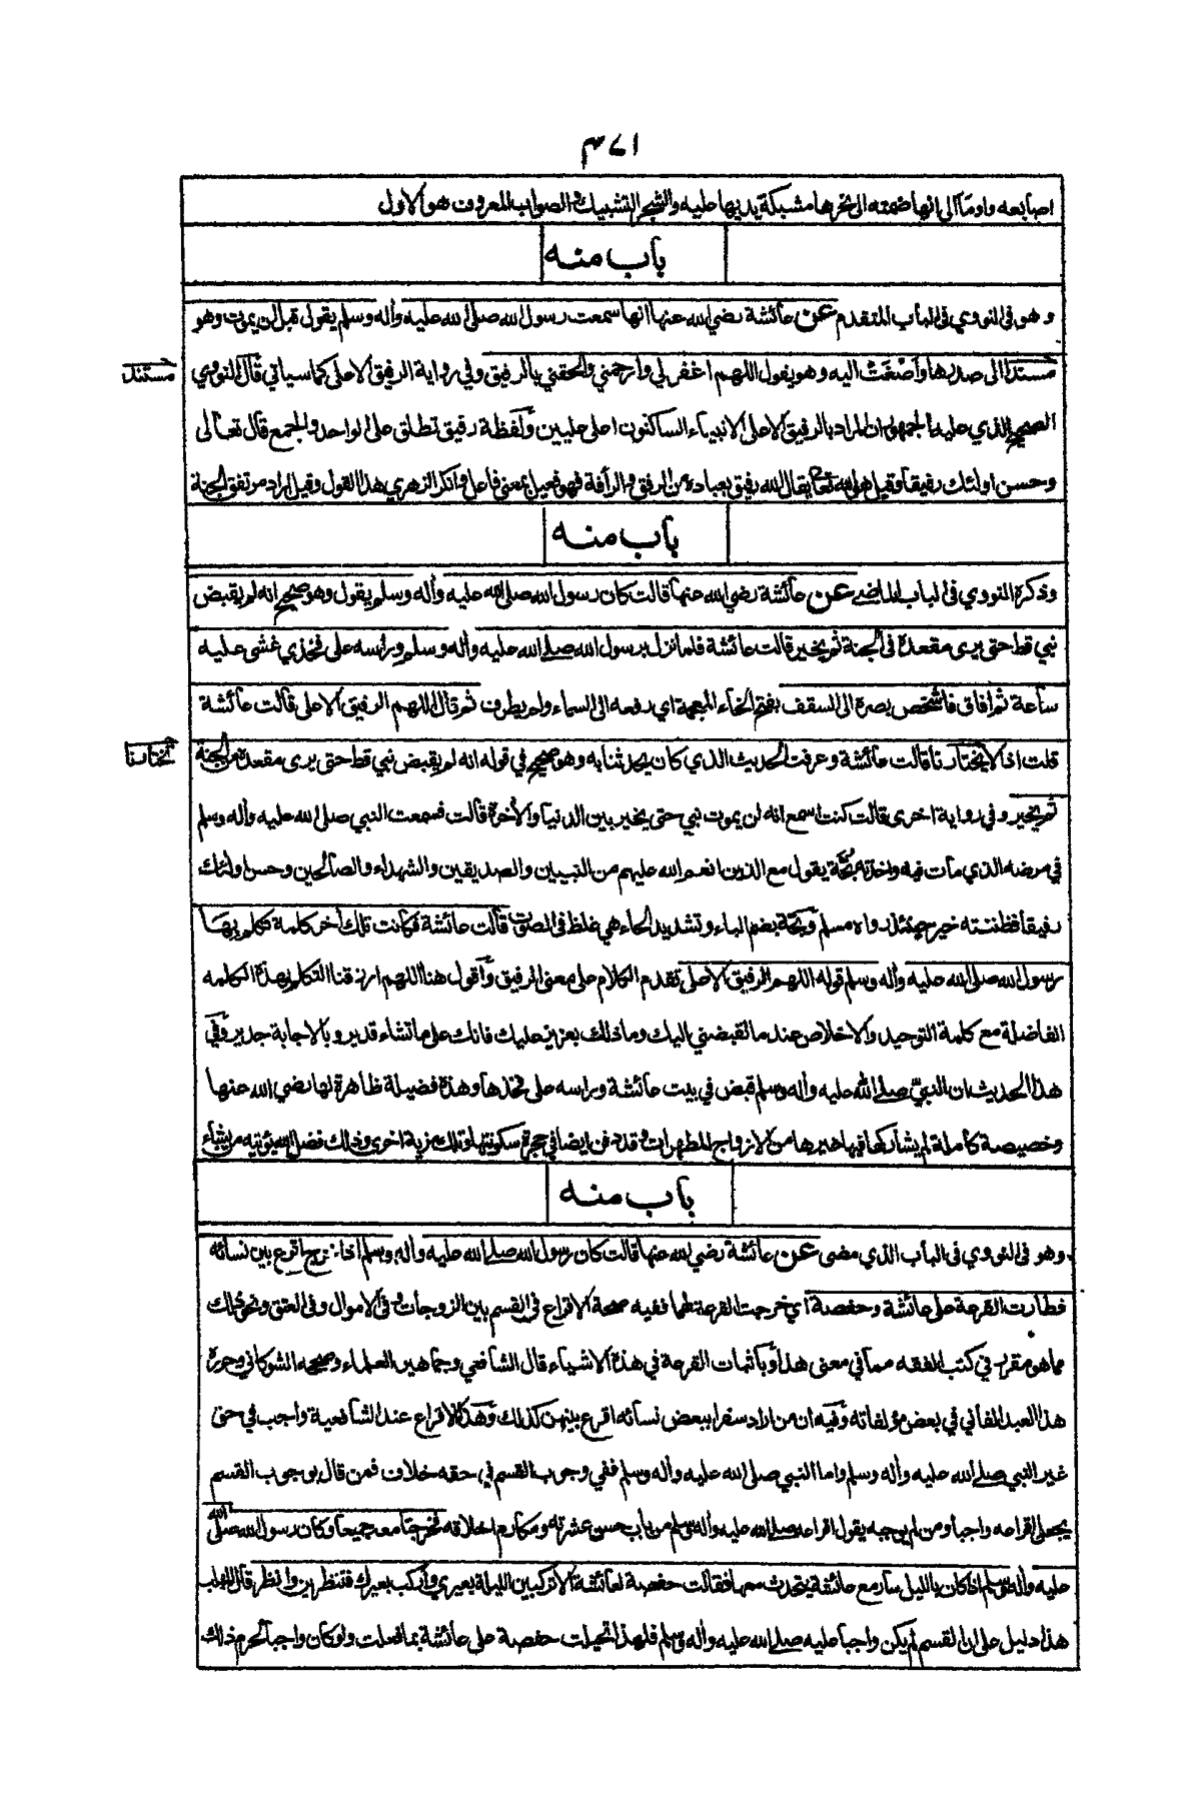 ٣٧١
اصابعه واومأ الى انها ضمته الى نحرها مشبكة يديها عليه والشجر التشبيك والصواب المعروف هو الاول
باب منه
وهو في النووي في الباب المتقدم عن عائشة رضي الله عنها انها سمعت رسول الله صلى الله عليه وأله وسلم يقول قبل ان يموت وهو
مستندا الى صدرها وأصغت اليه وهو يقول اللهم اغفر لي وارحمني والحقني بالرفيق وفي رواية الرفيق الاعلى كما سيأتي قال النووي
مستند
الصحيح الذي عليه الجمهور ان المراد بالرفيق الاعلى الانبياء الساكنون اعلى عليين ولفظة رفيق تطلق على الواحد والجمع قال تعالى
وحسن اولئك رفيقا وقيل هو الله تعالى يقال الله رفيق بعباده من الرفق والرأفة فهو فعيل بمعنى فاعل وانكر الزهري هذا القول وقيل اراد مرتفق الجنة
باب منه
وذكره النووي في الباب الماضي عن عائشة رضي الله عنها قالت كان رسول الله صلى الله عليه وأله وسلم يقول وهو صحيح انه لم يقبض
نبي قط حتى يرى مقعده في الجنة ثم يخير قالت عائشة فلما نزل برسول الله صلى الله عليه وأله وسلم ورأسه على فخذي غشى عليه
ساعة ثم افاق فاشخص بصره الى السقف بفتح الخاء المعجمة اي رفعه الى السماء ولم يطرف ثم قال اللهم الرفيق الاعلى قالت عائشة
قلت اذا لا يختارنا قالت عائشة وعرفت الحديث الذي كان يحدثنا به وهو صحيح في قوله انه لم يقبض نبي قط حتى يرى مقعده من الجنة
يختارنا
ثم يخير وفي رواية اخرى قالت كنت اسمع انه لن يموت نبي حتى يخير بين الدنيا والأخرة قالت فسمعت النبي صلى الله عليه وأله وسلم
في مرضه الذي مات فيه واخذته بحة يقول مع الذين انعم الله عليهم من النبيين والصديقين والشهداء والصالحين وحسن اولئك
رفيقا فظننته خير حينئذ رواه مسلم وبحة بضم الباء وتشديد الحاء هي غلظ في الصوت قالت عائشة فكانت تلك أخر كلمة تكلم بها
رسول الله صلى الله عليه وأله وسلم قوله اللهم الرفيق الاعلى تقدم الكلام على معنى الرفيق وأقول هنا اللهم ارزقنا التكلم بهذه الكلمه
الفاضلة مع كلمة التوحيد والاخلاص عند ما تقبضني اليك وما ذلك بعزيز عليك فانك على ما تشاء قدير وبالاجابة جدير وفي
هذا الحديث ان النبي صلى الله عليه وأله وسلم قبض في بيت عائشة ورأسه على فخذها وهذه فضيلة ظاهرة لها رضي الله عنها
وخصيصة كاملة لم يشاركها فيها غيرها من الازواج المطهرات وقد دفن ايضا في حجرة سكونتها وتلك مزية اخرى وذلك فضل الله يؤتيه من يشاء
باب منه
وهو في النووي في الباب الذي مضى عن عائشة رضي الله عنها قالت كان رسول الله صلى الله عليه وأله وسلم اذا خرج اقرع بين نسائه
فطارت القرعة على عائشة وحفصة اي خرجت القرعة لهما ففيه صحة الاقراع في القسم بين الزوجات وفي الاموال وفي العتق ونحو ذلك
مما هو مقرر في كتب الفقه مما في معنى هذا وباثبات القرعة في هذه الاشياء قال الشافعي وجماهير العلماء وصححه الشوكاني وحرره
هذا العبد الفاني في بعض مؤلفاته وفيه ان من اراد سفرا ببعض نسائه اقرع بينهن كذلك وهذا الاقراع عند الشافعية واجب في حق
غير النبي صلى الله عليه وأله وسلم واما النبي صلى الله عليه وأله وسلم ففي وجوب القسم في حقه خلاف فمن قال بوجوب القسم
يجعل اقراعه واجبا ومن لم يوجبه يقول اقراعه صلى الله عليه وأله وسلم من باب حسن عشرته ومكارم اخلاقه فخرجتا معه جميعا وكان رسول الله صلى الله
عليه وأله وسلم اذا كان بالليل سار مع عائشة يتحدث معها فقالت حفصة لعائشة الا تركبين الليلة بعيري وأركب بعيرك فتنظرين وانظر قال المهلب
هذا دليل على ان القسم لم يكن واجبا عليه صلى الله عليه وأله وسلم فلهذا تحيلت حفصة على عائشة بما فعلت ولو كان واجبا لحرم ذلك